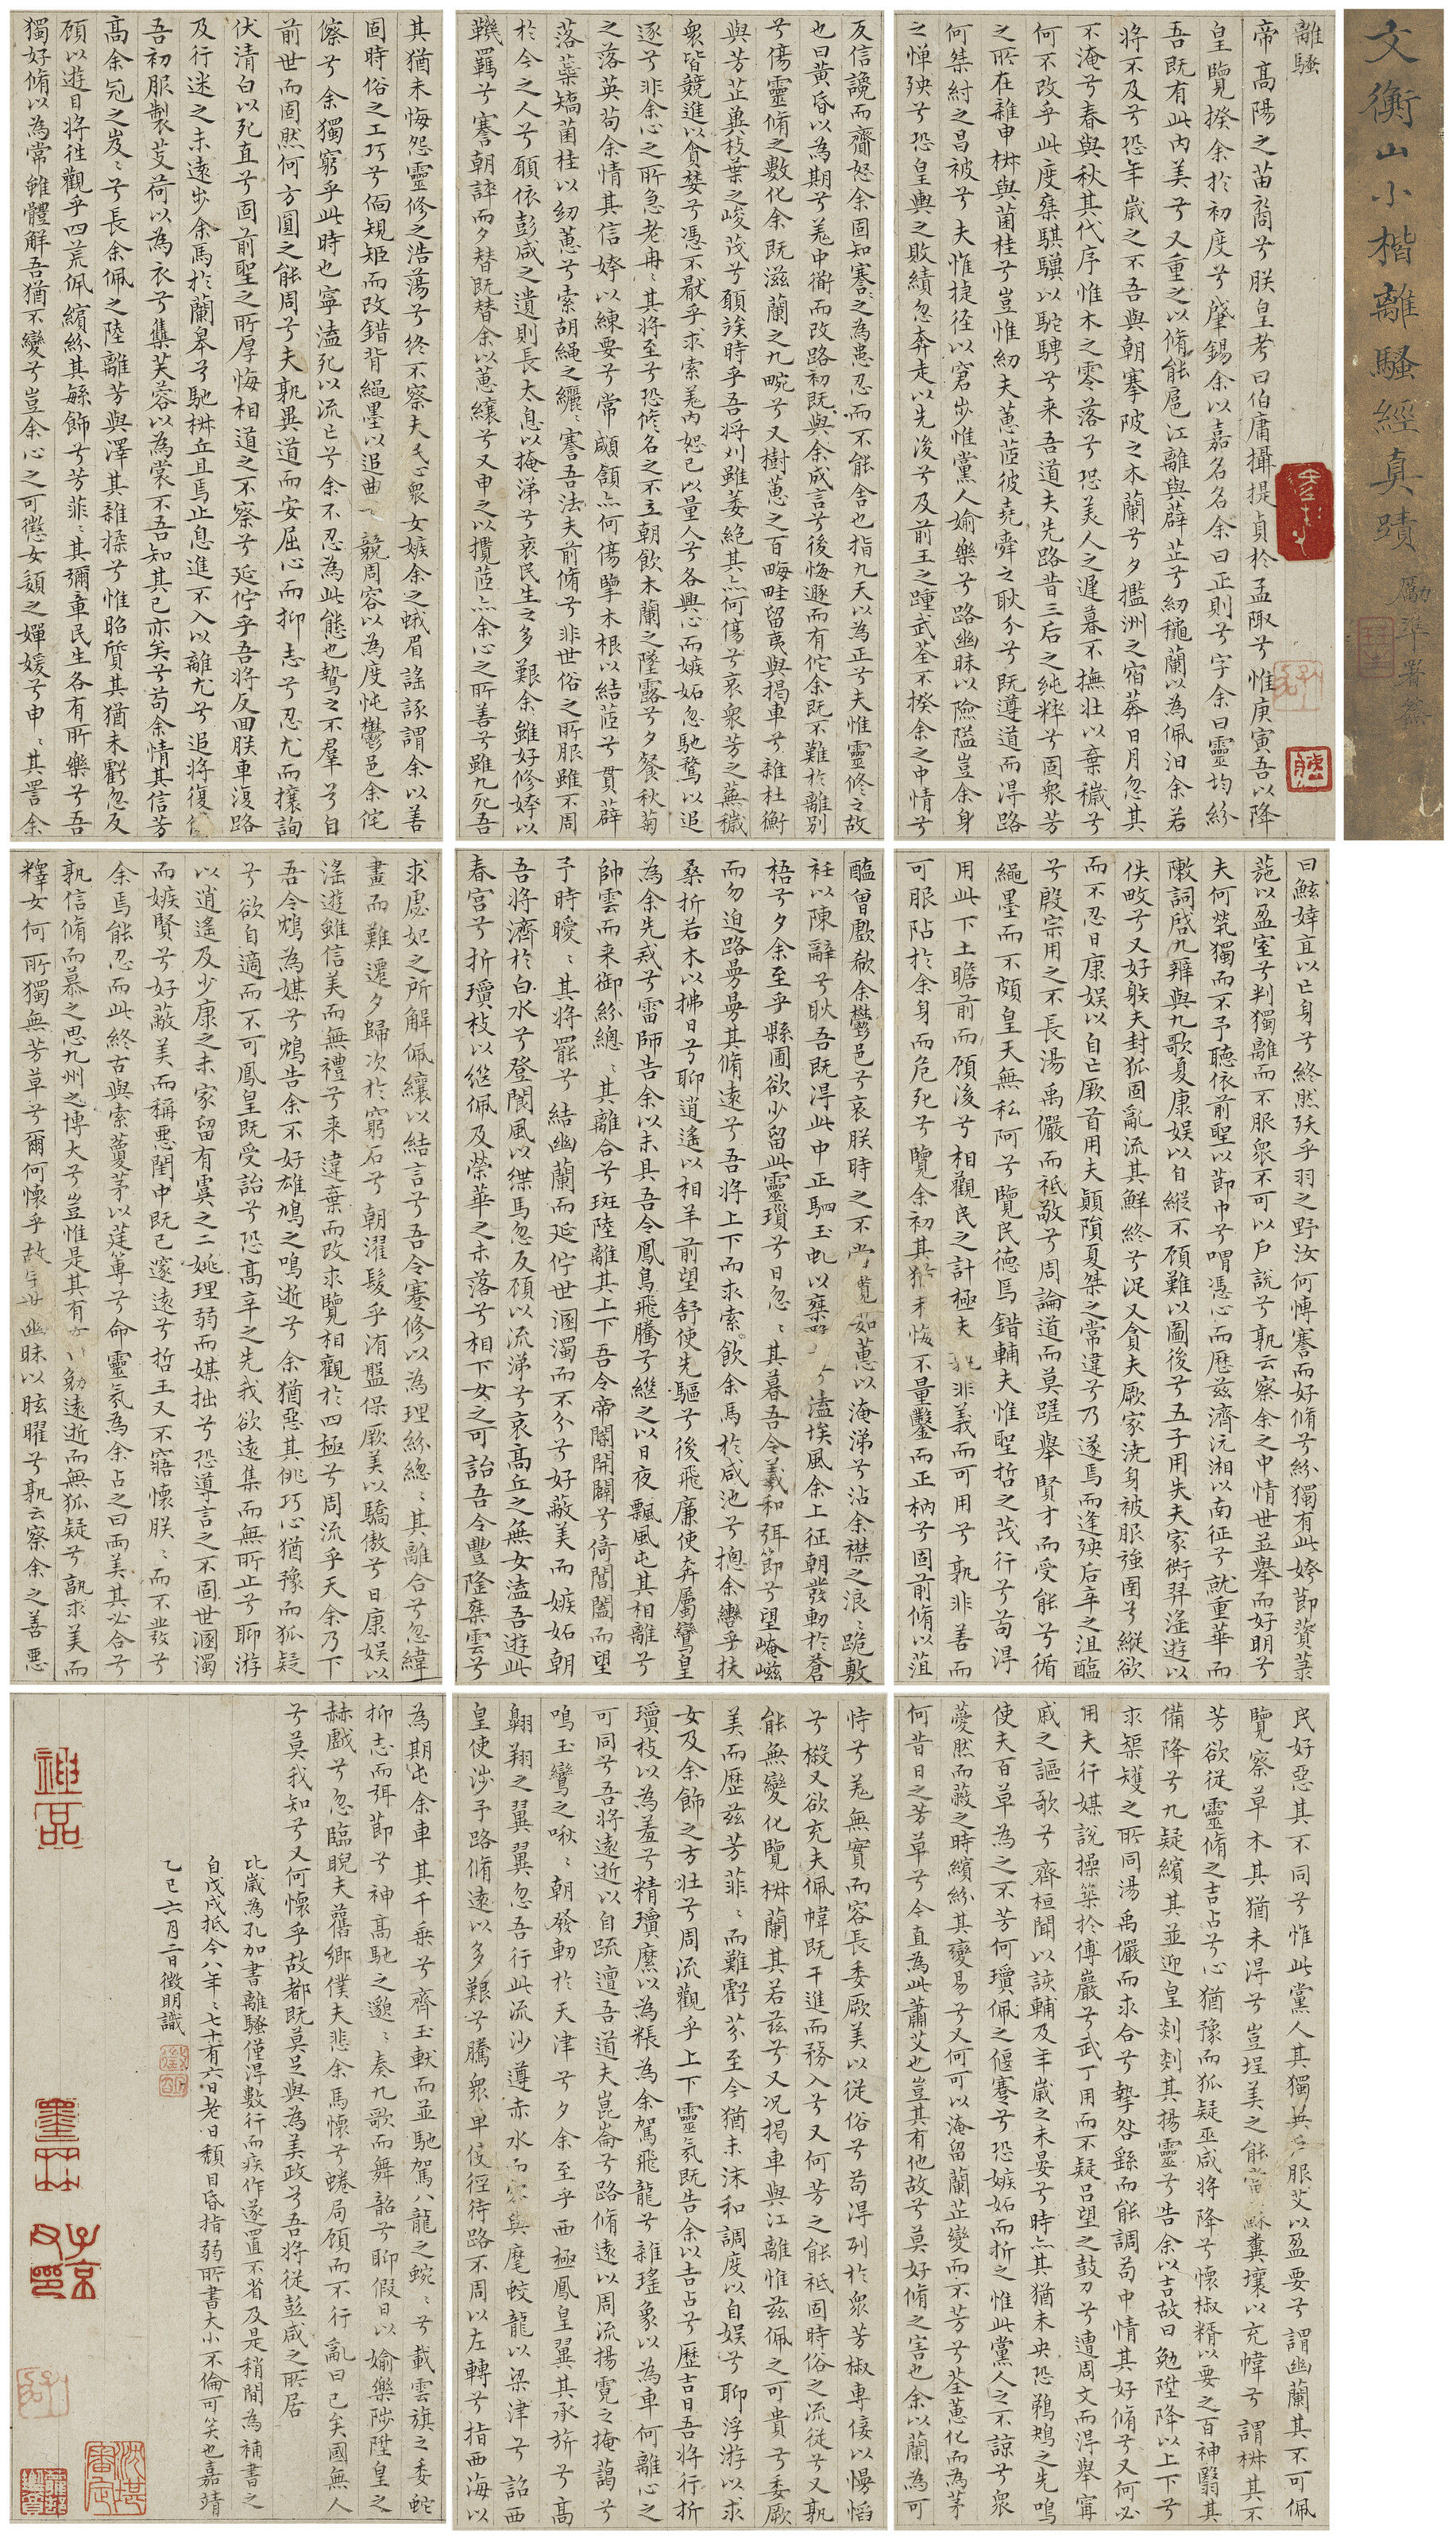 文衡山小楷離騷經真蹟
勵準署簽
離騷
帝高陽之苗裔兮朕皇考曰伯庸攝提貞於孟陬兮惟庚寅吾以降
皇覽揆余於初度兮肇錫余以嘉名名余曰正則兮字余曰靈均紛
吾既有此內美兮又重之以脩能扈江離與薜芷兮紉龝蘭以為佩汨余若
將不及兮恐年歲之不吾與朝搴陂之木蘭兮夕擥洲之宿莽日月忽其
不淹兮春與秋其代序惟木之零落兮恐美人之遲暮不撫壯以棄穢兮
何不改乎此度椉騏驥以駝騁兮来吾道夫先路昔三后之純粹兮固衆芳
之所在雜申椒與菌桂兮豈惟紉夫蕙茝彼堯舜之耿介兮既遵道而淂路
何桀紂之昌被兮夫惟捷徑以窘步惟黨人媮樂兮路幽昧以險隘豈余身
之憚殃兮恐皇輿之敗績忽奔走以先後兮及前王之踵武荃不揆余之中情兮
反信讒而齌怒余固知謇之為患忍而不能舍也指九天以為正兮夫惟靈修之故
也曰黃昏以為期兮羌中衜而改路初既與余成言兮後悔遯而有佗余既不難於離別
兮傷靈脩之數化余既滋蘭之九畹兮又樹蕙之百畮畦留夷與揭車兮雜杜衡
與芳芷冀枝葉之峻茂兮願竢時乎吾將刈雖萎絕其亦何傷兮哀衆芳之蕪穢
衆皆競進以貪婪兮憑不猒乎求索羌內恕己以量人兮各興心而嫉妬忽馳騖以追
逐兮非余心之所急老冉〻其將至兮恐修名之不立朝飲木蘭之墜露兮夕餐秋菊
之落英苟余情其信姱以練要兮常顑頷亦何傷擥木根以結茝兮貫薜
落蘂矯菌桂以紉蕙兮索胡繩之纚〻謇吾法夫前脩兮非世俗之所服雖不周
於今之人兮願依彭咸之遺則長太息以掩涕兮哀民生之多艱余雖好修姱以
鞿羈兮謇朝誶而夕替既替余以蕙纕兮又申之以攬茝亦余心之所善兮雖九死吾
其猶未悔怨靈修之浩蕩兮終不察夫民心衆女嫉余之蛾眉謠諑謂余以善
固時俗之工巧兮偭規矩而改錯背繩墨以追曲競周容以為度忳鬱邑余侘
傺兮余獨窮乎此時也寧溘死以流亡兮余不忍為此態也鷙之不羣兮自
前世而固然何方圓之能周兮夫孰異道而安屈心而抑志兮忍尤而攘詢
伏清白以死直兮固前聖之所厚悔相道之不察兮延佇乎吾將反回朕車復路
及行迷之未遠步余馬於蘭皋兮馳椒丘且焉止息進不入以離尤兮退將復
吾初服製芰荷以為衣兮集芙蓉以為裳不吾知其已亦矣兮苟余情其信芳
高余冠之岌〻兮長余佩之陸離芳與澤其雜揉兮惟昭質其猶未虧忽反
顧以遊目將徃觀乎四荒佩繽紛其繇飾兮芳菲〻其彌章民生各有所樂兮吾
獨好脩以為常雖體解吾猶不變兮豈余心之可懲女嬃之嬋媛兮申〻其詈余
曰鮌婞直以亡身兮終然殀乎羽之野汝何博謇而好脩兮紛獨有此姱節薋菉
葹以盈室兮判獨離而不服衆不可以戶說兮孰云察余之中情世並舉而好朋兮
夫何煢獨而不予聽依前聖以節中兮喟憑心而歷茲濟沅湘以南征兮就重華而
敶詞啓九辯與九歌夏康娛以自縱不顧難以圖後兮五子用失夫家衖羿滛遊以
佚畋兮又好躲夫封狐固亂流其鮮終兮浞又貪夫厥家澆身被服強圉兮縱欲
而不忍日康娛以自亡厥首用夫顛隕夏桀之常違兮乃遂焉而逢殃后辛之沮醢
兮殷宗用之不長湯禹儼而祗敬兮周論道而莫蹉舉賢才而受能兮循
繩墨而不頗皇天無私阿兮覽民德焉錯輔夫惟聖哲之茂行兮苟淂
用此下土瞻前而顧後兮相觀民之計極夫孰非義而可用兮孰非善而
可服阽於余身而危死兮覽余初其猶未悔不量鑿而正枘兮固前脩以菹
醢曾歔欷余鬱邑兮哀朕時之不當覽茹蕙以淹涕兮沾余襟之浪〻跪敷
衽以陳辭兮耿吾既淂此中正駟玉虬以椉兮溘埃風余上征朝發軔於蒼
梧兮夕余至乎縣圃欲少留此靈瑣兮日忽〻其暮吾令羲和弭節兮望崦嵫
而勿迫路曼曼其脩遠兮吾將上下而求索飲余馬於咸池兮摠余轡乎扶
桑折若木以拂日兮聊逍遙以相羊前望舒使先驅兮後飛廉使奔屬鸞皇
為余先戒兮雷師告余以未具吾令鳳鳥飛騰兮繼之以日夜飄風屯其相離兮
帥雲而来御紛總〻其離合兮斑陸離其上下吾令帝閽開闢兮倚閶闔而望
予時曖〻其將罷兮結幽蘭而延佇世溷濁而不分兮好蔽美而嫉妬朝
吾將濟於白水兮登閬風以緤馬忽反顧以流涕兮哀高丘之無女溘吾遊此
春宮兮折瓊枝以継佩及榮華之未落兮相下女之可詒吾令豐隆椉雲兮
求虙妃之所解佩纕以結言兮吾令蹇修以為理紛緫〻其離合兮忽緯
畫而難遷夕歸次於窮石兮朝濯髮乎洧盤保厥美以驕傲兮日康娛以
滛遊雖信美而無禮兮来違棄而改求覽相觀於四極兮周流乎天余乃下
吾令鴆為媒兮鴆告余不好雄鳩之鳴逝兮余猶惡其佻巧心猶豫而狐疑
兮欲自適而不可鳳皇既受詒兮恐高辛之先我欲遠集而無所止兮聊游
以逍遙及少康之未家留有虞之二姚理弱而媒拙兮恐導言之不固世溷濁
而嫉賢兮好蔽美而稱惡閨中既已邃遠兮哲王又不寤懷朕〻而不發兮
余焉能忍而此終古與索藑茅以莛篿兮命靈氛為余占之曰兩美其必合兮
孰信脩而慕之思九州之博大兮豈惟是其有女勉遠逝而無狐疑兮孰求美而
釋女何所獨無芳草兮爾何懷乎故宇世幽昧以眩曜兮孰云察余之善惡
民好惡其不同兮惟此黨人其獨異戶服艾以盈要兮謂幽蘭其不可佩
覽察草木其猶未淂兮豈珵美之能當蘇糞壤以充幃兮謂椒其不
芳欲從靈脩之吉占兮心猶豫而狐疑巫咸將降兮懷椒糈以要之百神翳其
備降兮九疑繽其並迎皇剡剡其揚靈兮告余以吉故曰勉陞降以上下兮
求榘矱之所同湯禹儼而求合兮摯咎繇而能調苟中情其好脩兮又何必
用夫行媒說操築於傅巖兮武丁用而不疑呂望之鼓刀兮遭周文而淂舉甯
戚之謳歌兮齊桓聞以該輔及年歲之未晏兮時亦其猶未央恐鵜鴂之先鳴
使夫百草為之不芳何瓊佩之偃蹇兮恐嫉妬而折之惟此黨人之不諒兮衆
薆然而蔽之時繽紛其變易兮又何可以淹留蘭芷變而不芳兮荃蕙化而為茅
何昔日之芳草兮今直為此蕭艾也豈其有他故兮莫好脩之害也余以蘭為可
恃兮羌無實而容長委厥美以從俗兮苟淂列於衆芳椒專佞以慢慆
兮樧又欲充夫佩幃既干進而務入兮又何芳之能祗固時俗之流從兮又孰
能無變化覽椒蘭其若茲兮又况揭車與江離惟茲佩之可貴兮委厥
美而歷茲芳菲〻而難虧芬至今猶未沬和調度以自娛兮聊浮游以求
女及余飾之方壯兮周流觀乎上下靈氛既告余以吉占兮歷吉日吾將行折
瓊枝以為羞兮精瓊縻以為粻為余駕飛龍兮雜瑤象以為車何離心之
可同兮吾將遠逝以自疏邅吾道夫崑崙兮路脩遠以周流揚霓之掩藹兮
鳴玉鸞之啾〻朝發軔於天津兮夕余至乎西極鳳皇翼其承旂兮高
翺翔之翼翼忽吾行此流沙遵赤水而容與麾蛟龍以梁津兮詔西
皇使涉予路脩遠以多艱兮騰衆車使徑待路不周以左轉兮指西海以
為期屯余車其千乗兮齊玉軑而並馳駕八龍之蜿〻兮載雲旗之委蛇
抑志而弭節兮神高馳之邈〻奏九歌而舞韶兮聊假日以媮樂陟陞皇之
赫戲兮忽臨睨夫舊鄉僕夫悲余馬懷兮蜷局顧而不行亂曰已矣國無人
兮莫我知兮又何懷乎故都既莫足與為美政兮吾將從彭咸之所居
比歲為孔加書離騷僅淂數行而疾作遂置不省及是稍閒為補書之
自戊戌抵今八年〻七十有六日老日頹目昏指弱所書大小不倫可笑也嘉靖
乙巳六月二日徵明識
神品
墨林
子京父印